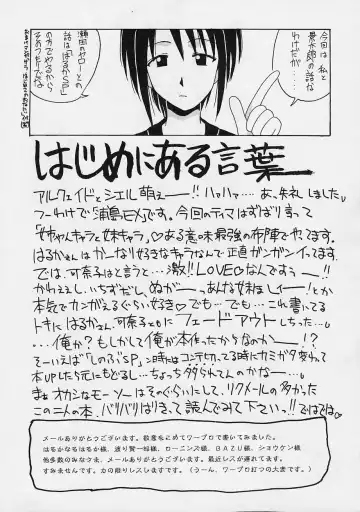 今回は私と
景太郎の話な
わけだが…
瀬田のヤローとの
話は「はるかSP」
の方でやるから
そのつもりでな
はじめにある言葉
アルクェイドとシエル萌え――!!ハァハァ…。あ、失礼しました
つーわけで「浦島EX」です。今回のテーマはずばり言って
「姉ちゃんキャラと妹キャラ」♡ある意味最強の布陣でやってます。
はるかさんはかーなり好きなキャラなんで正直ガンガンイってます。
では、可奈子はと言うと…激!!LOVE♡なんですっ――!!
かわええし、いちずだし
本気でカンがえるぐらい好き♡でも…でも…これ書ってる
トキにはるかさん、可奈子ともにフェードアウトしちった…。
…俺か?もしかして俺が本作ったからなのか――!?
そーいえば「しのぶSP」ン時はコンテ切ってる時カミがタ変わって
本UPしたら元にもどるし…ちょっち祟られてんのかな?
まぁオカシなモーソーはそのぐらいにして、リクメールの多かった
この二人の本、バリバリはりきって読んでみて下さいっ!!ではでは♡
メールありがとうございます。敬意をこめてワープロで書いてみました。
はるかなるはるか様、渡り賢一郎様、ローニンズ様、BAZU様、ショウケン様
他多数のみなさま、メールありがとうございます。最近レスが遅れてます。
すみませんです。力の限りレスしますです。(うーん、ワープロ打つの大変です。)